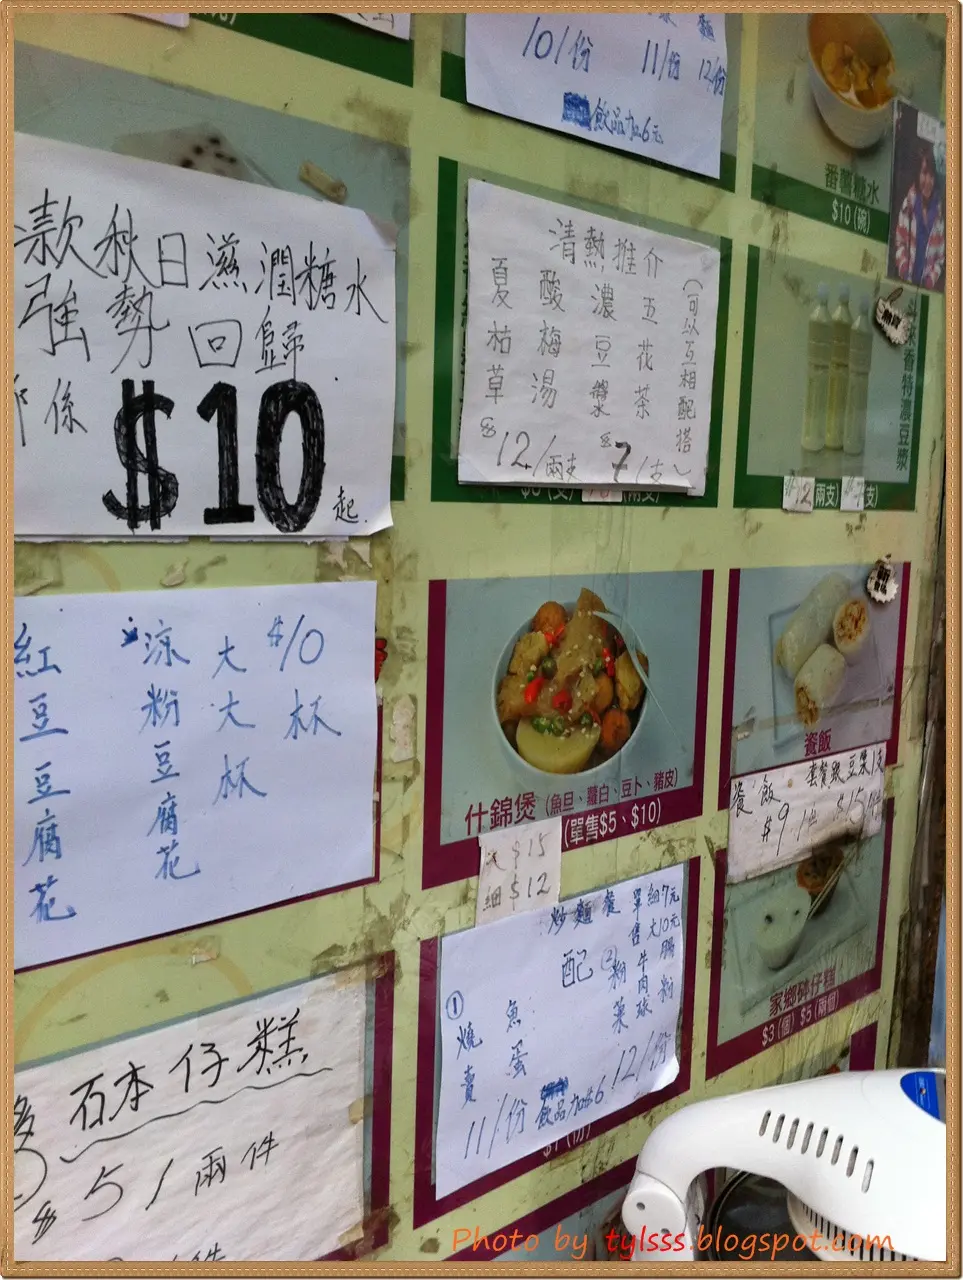 10/份 11/份 12/份
飲品加6元
款秋日滋潤糖水
強勢回歸
係
$10
起
清熱推介
(可以互相配搭)
五花茶
濃豆漿
酸梅湯
夏枯草
$12/兩支
$7/支
番薯糖水
$10(碗)
斗水香特濃豆漿
$12兩支) $7支)
$10
杯
大大杯
涼粉豆腐花
紅豆豆腐花
什錦煲(魚旦、蘿白、豆卜、豬皮)
(單售$5、$10)
$15
細$12
瓷飯
$9
$15
炒麵
配
單售
細7元
大10元
腸粉
牛肉球
粉菓
①
燒賣
魚蛋
②
11/份
12/份
飲品加$6
家鄉砵仔糕
$3(個) $5(兩個)
石本仔糕
$5/兩件
Photo by tylsss.blogspot.com